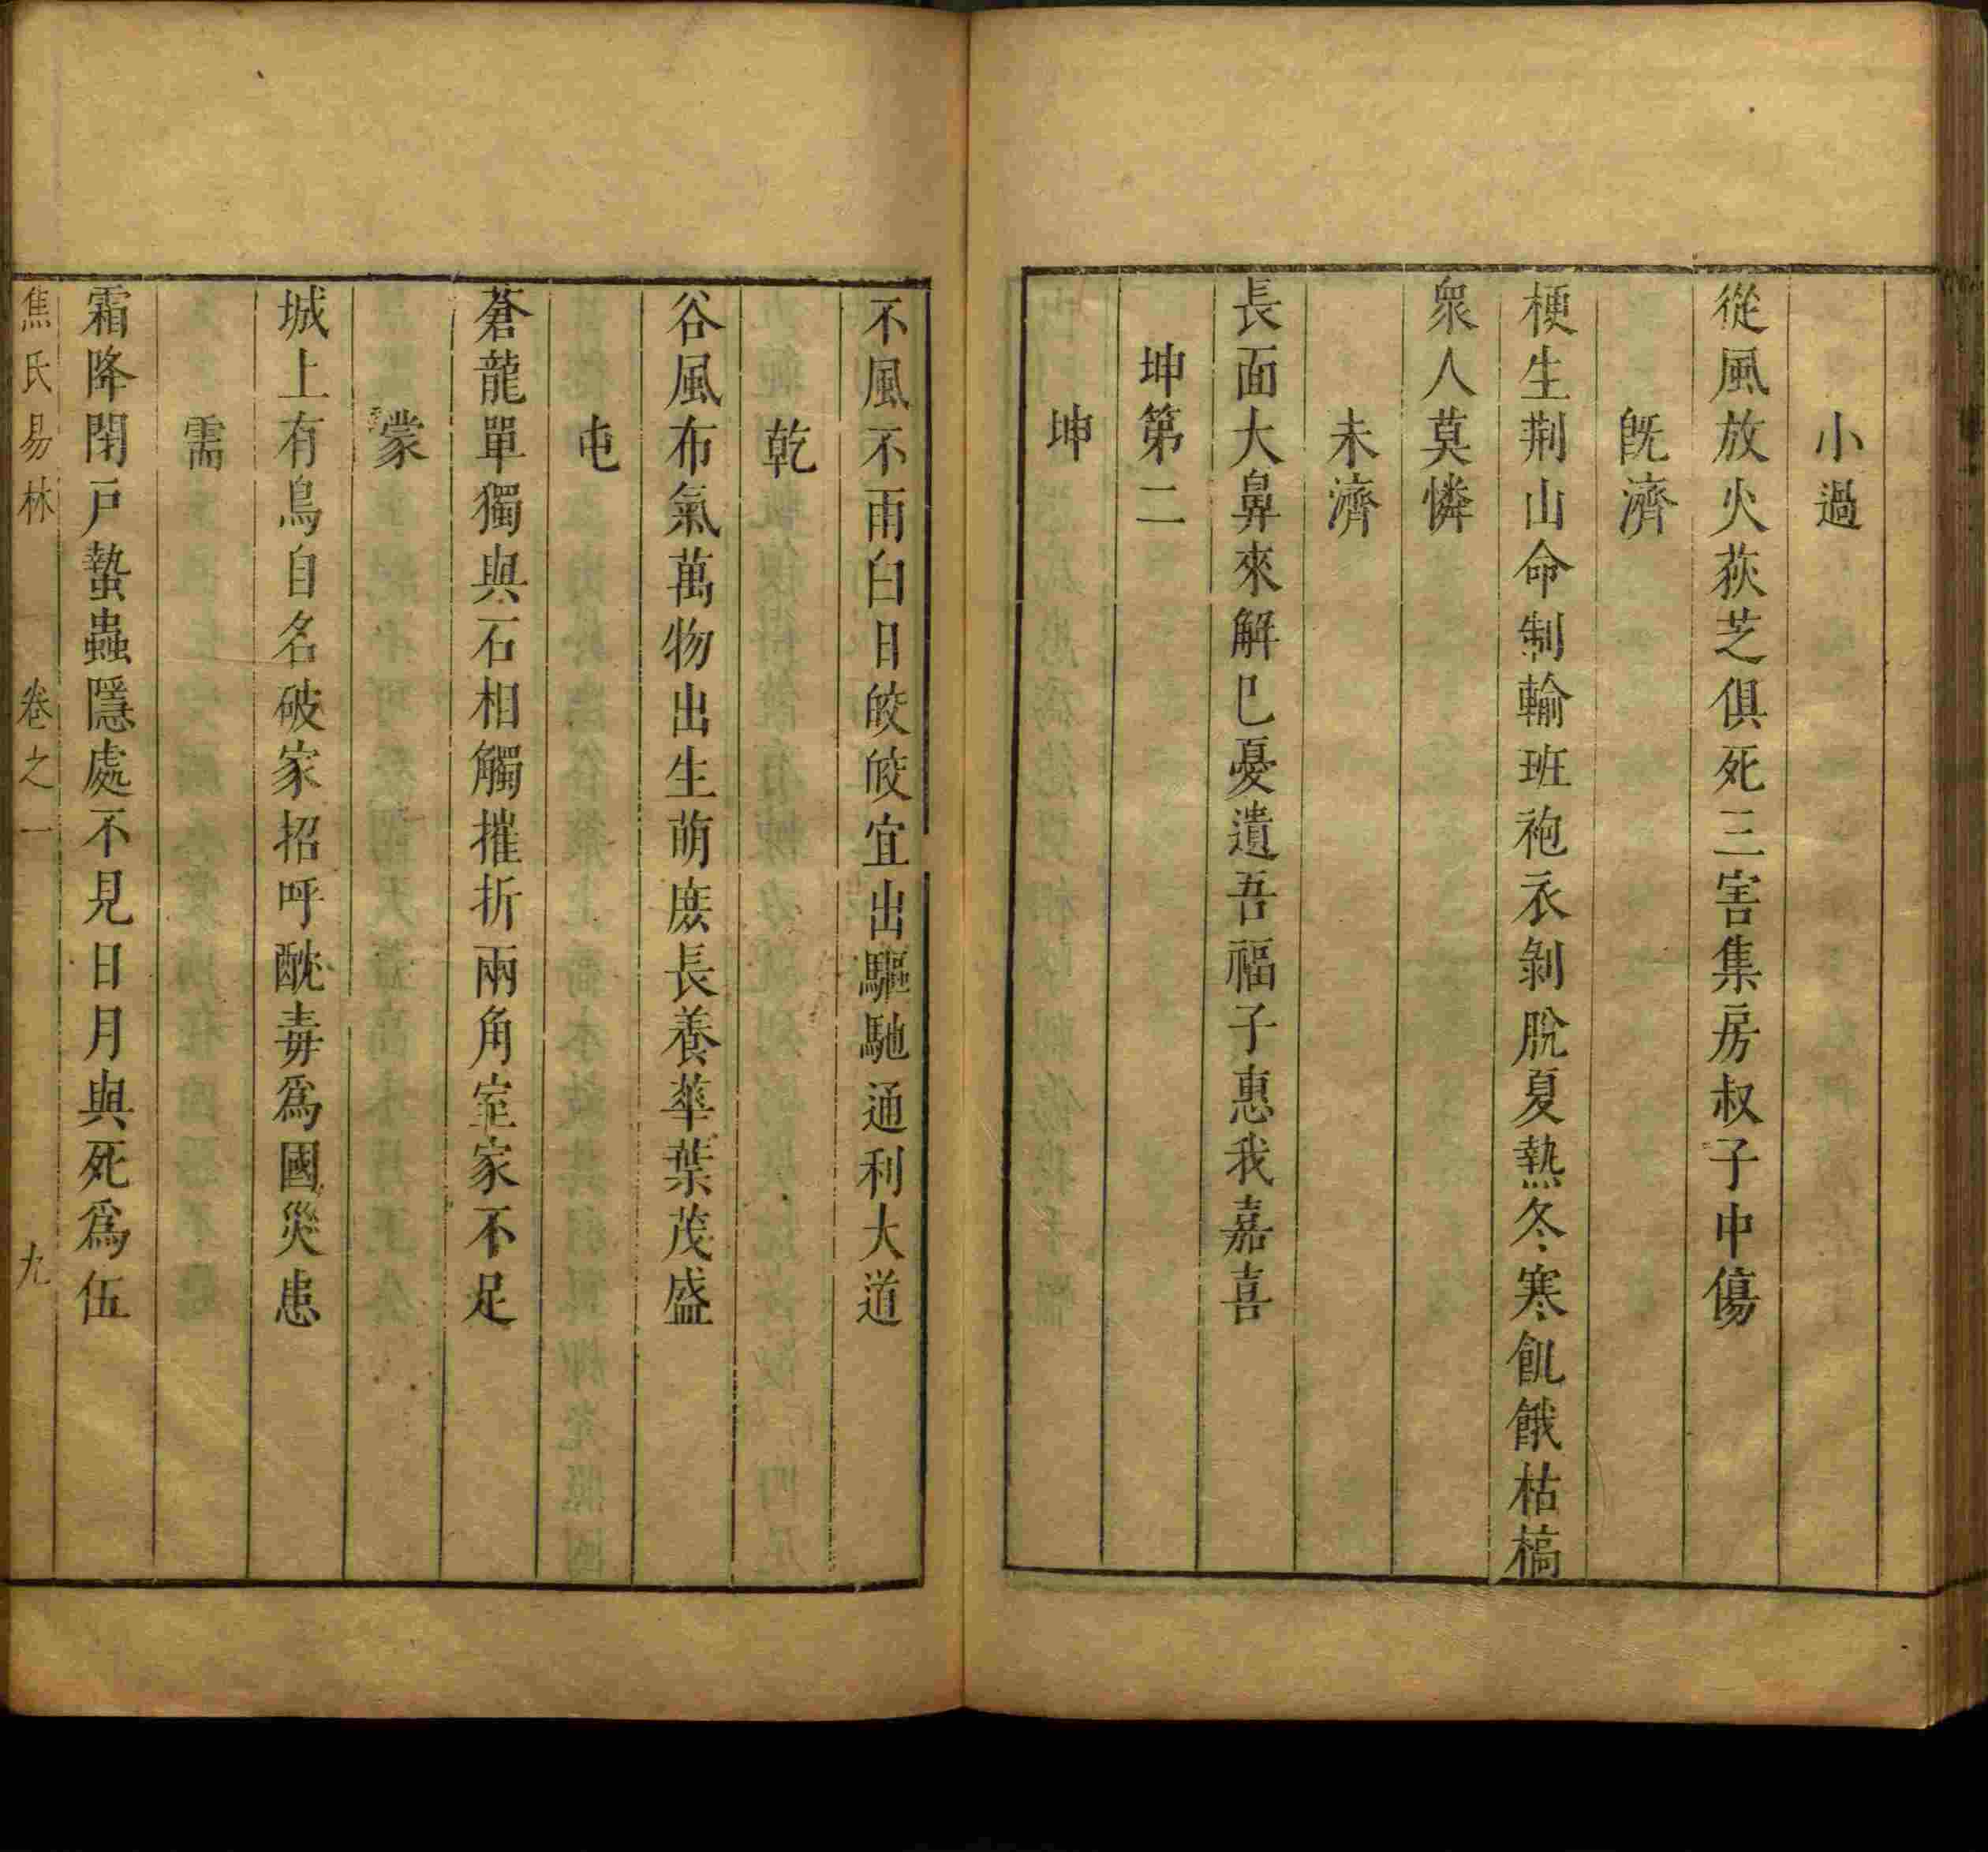 小過
從風放火荻芝俱死三害集房叔子中傷
旣濟
梗生荆山命制輸班袍衣剝脫夏熱冬寒飢餓枯槁
衆人莫憐
未濟
長面大鼻來解巳憂遺吾福子惠我嘉喜
坤第二
坤
不風不雨白日皎皎宜出驅馳通利大道
乾
谷風布氣萬物出生萌庶長養華葉茂盛
屯
蒼龍單獨與石相觸摧折兩角室家不足
蒙
城上有烏自名破家招呼酖毒爲國災患
需
霜降閉戸蟄蟲隱處不見日月與死爲伍
焦氏易林 卷之一 九